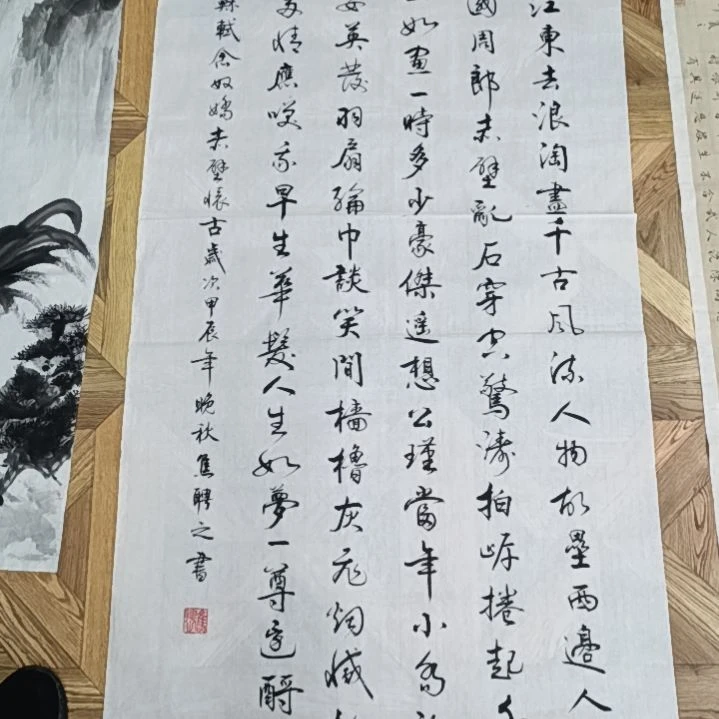 江東去浪淘盡千古風流人物故壘西邊人
國周郎赤壁亂石穿空驚濤拍岸捲起
如畫一時多少豪傑遙想公瑾當年小喬
英發羽扇綸巾談笑間檣櫓灰飛煙滅
多情應笑我早生華髮人生如夢一尊還酹
蘇軾念奴嬌赤壁懷古歲次甲辰年晚秋焦聘之書